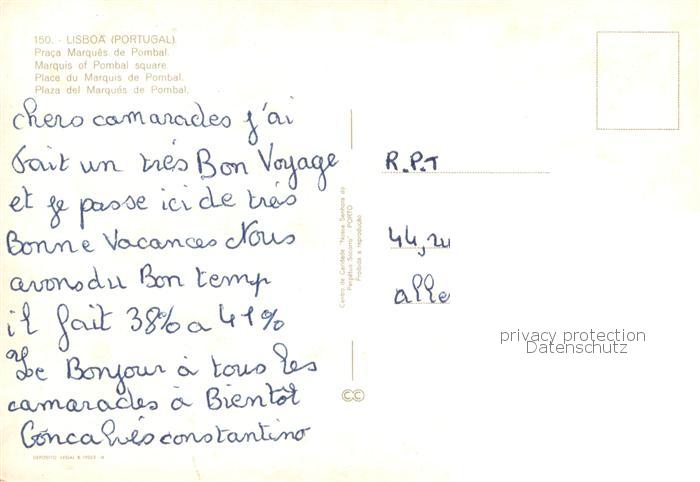 150. - LISBOA (PORTUGAL)
Praça Marquês de Pombal.
Marquis of Pombal square.
Place du Marquis de Pombal.
Plaza del Marqués de Pombal.
chers camarades j'ai
fait un trés Bon Voyage
et je passe ici de trés
Bonne Vacances Nous
avons du Bon temp
il fait 38% a 41%
Le Bonjour à tous les
camarades à Bientôt
Goncalvés constantino
DEPÓSITO LEGAL
Centro de Caridade "Nossa Senhora do
Perpétuo Socorro" - PORTO
Proibida a reprodução
CC
R.P.T
44, ru
alle
privacy protection
Datenschutz